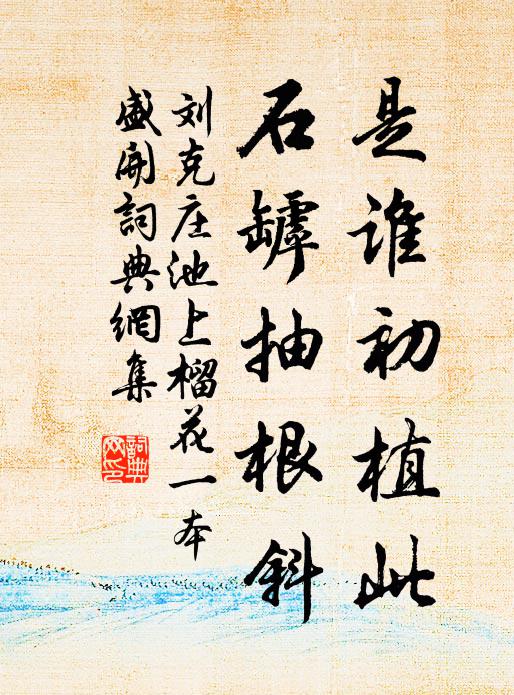 是谁初植此
石罅抽根斜
刘克庄池上榴花一本
盛开词典網集
詞典网印